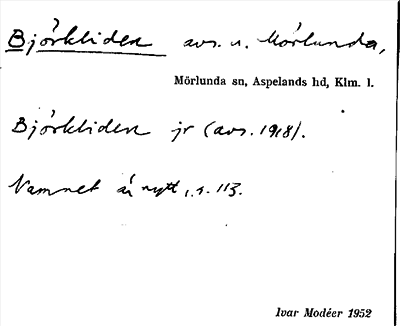 Björkliden avs. u. Mörlunda,
Mörlunda sn, Aspelands hd, Klm. l.
Björkliden jr (avs. 1918).
Namnet är nytt, s. 113.
Ivar Modéer 1952